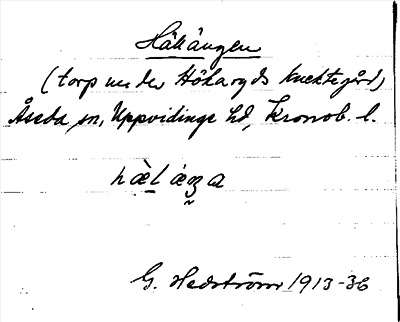 Hällängen
(torp under Hökaryds knektegård)
Åseda sn, Uppvidinge hd, Kronob. l.
G. Hedström 1913-36